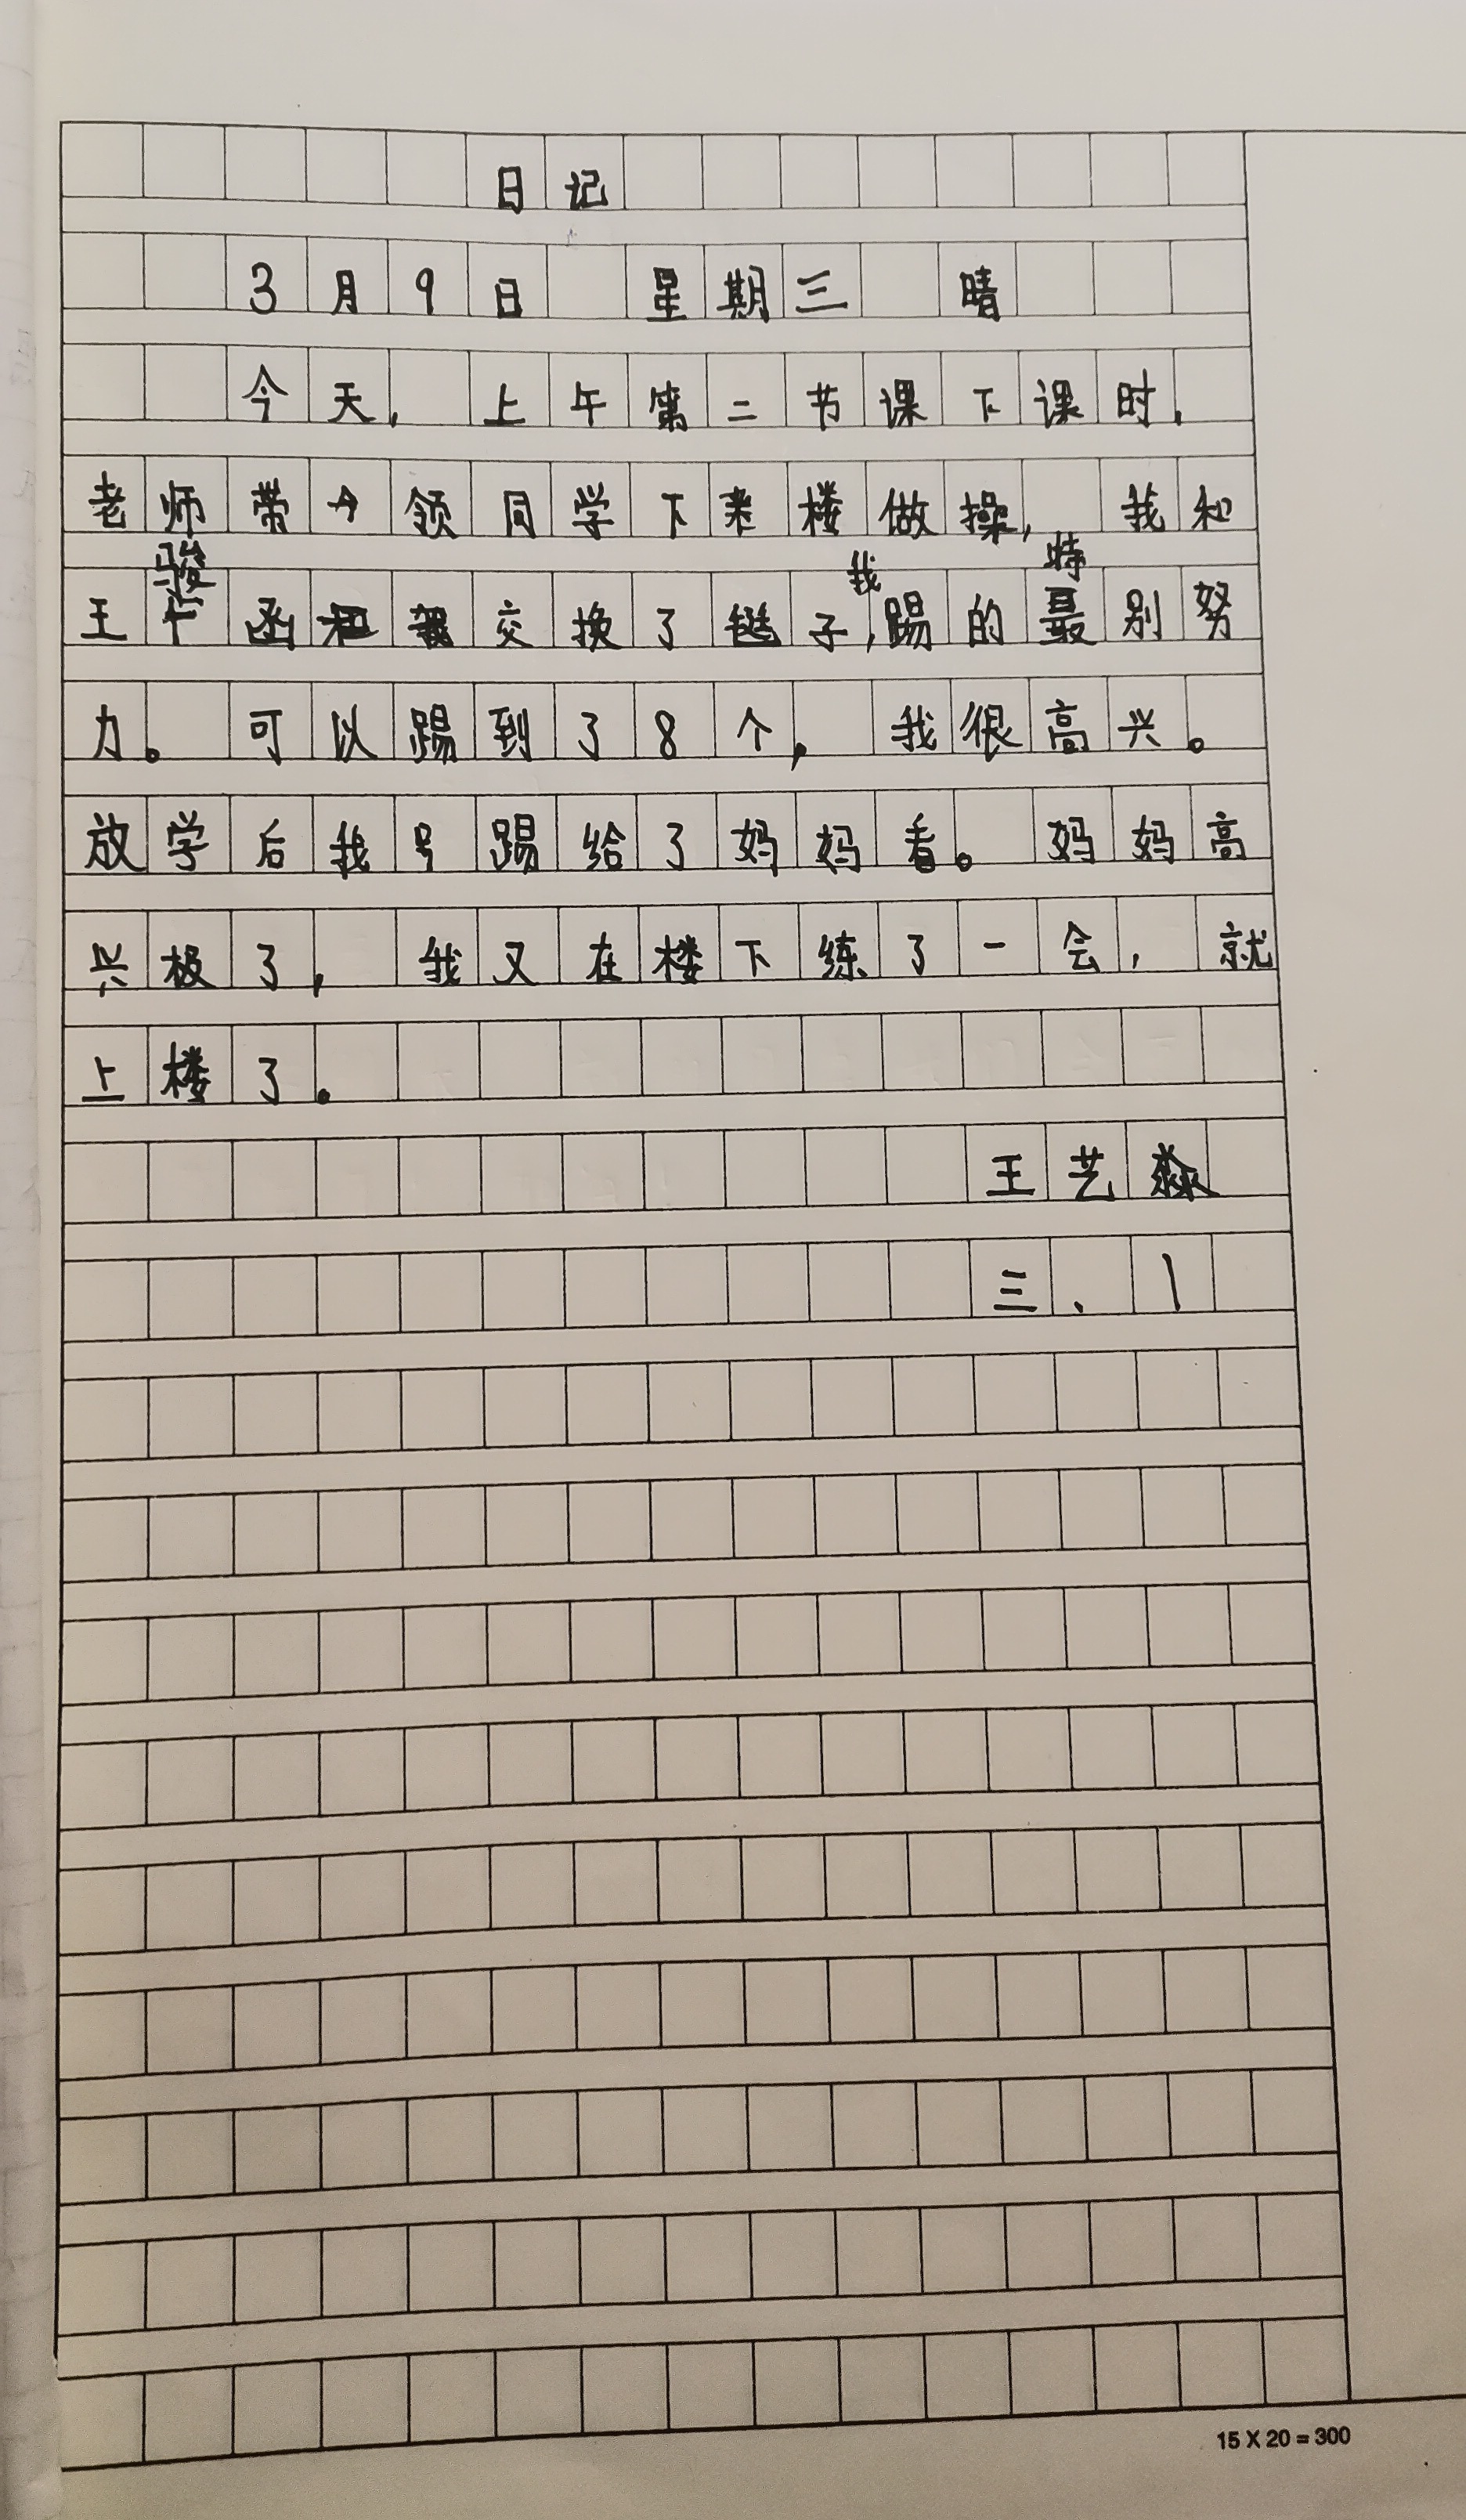 日记
3月9日 星期三 晴
今天，上午第二节课下课时，
老师带领同学下楼做操，我和
王骏函交换了毽子，我踢的特别努
力。可以踢到了8个，我很高兴。
放学后我踢给了妈妈看。妈妈高
兴极了，我又在楼下练了一会，就
上楼了。
王艺淼
三、1
15 X 20 = 300